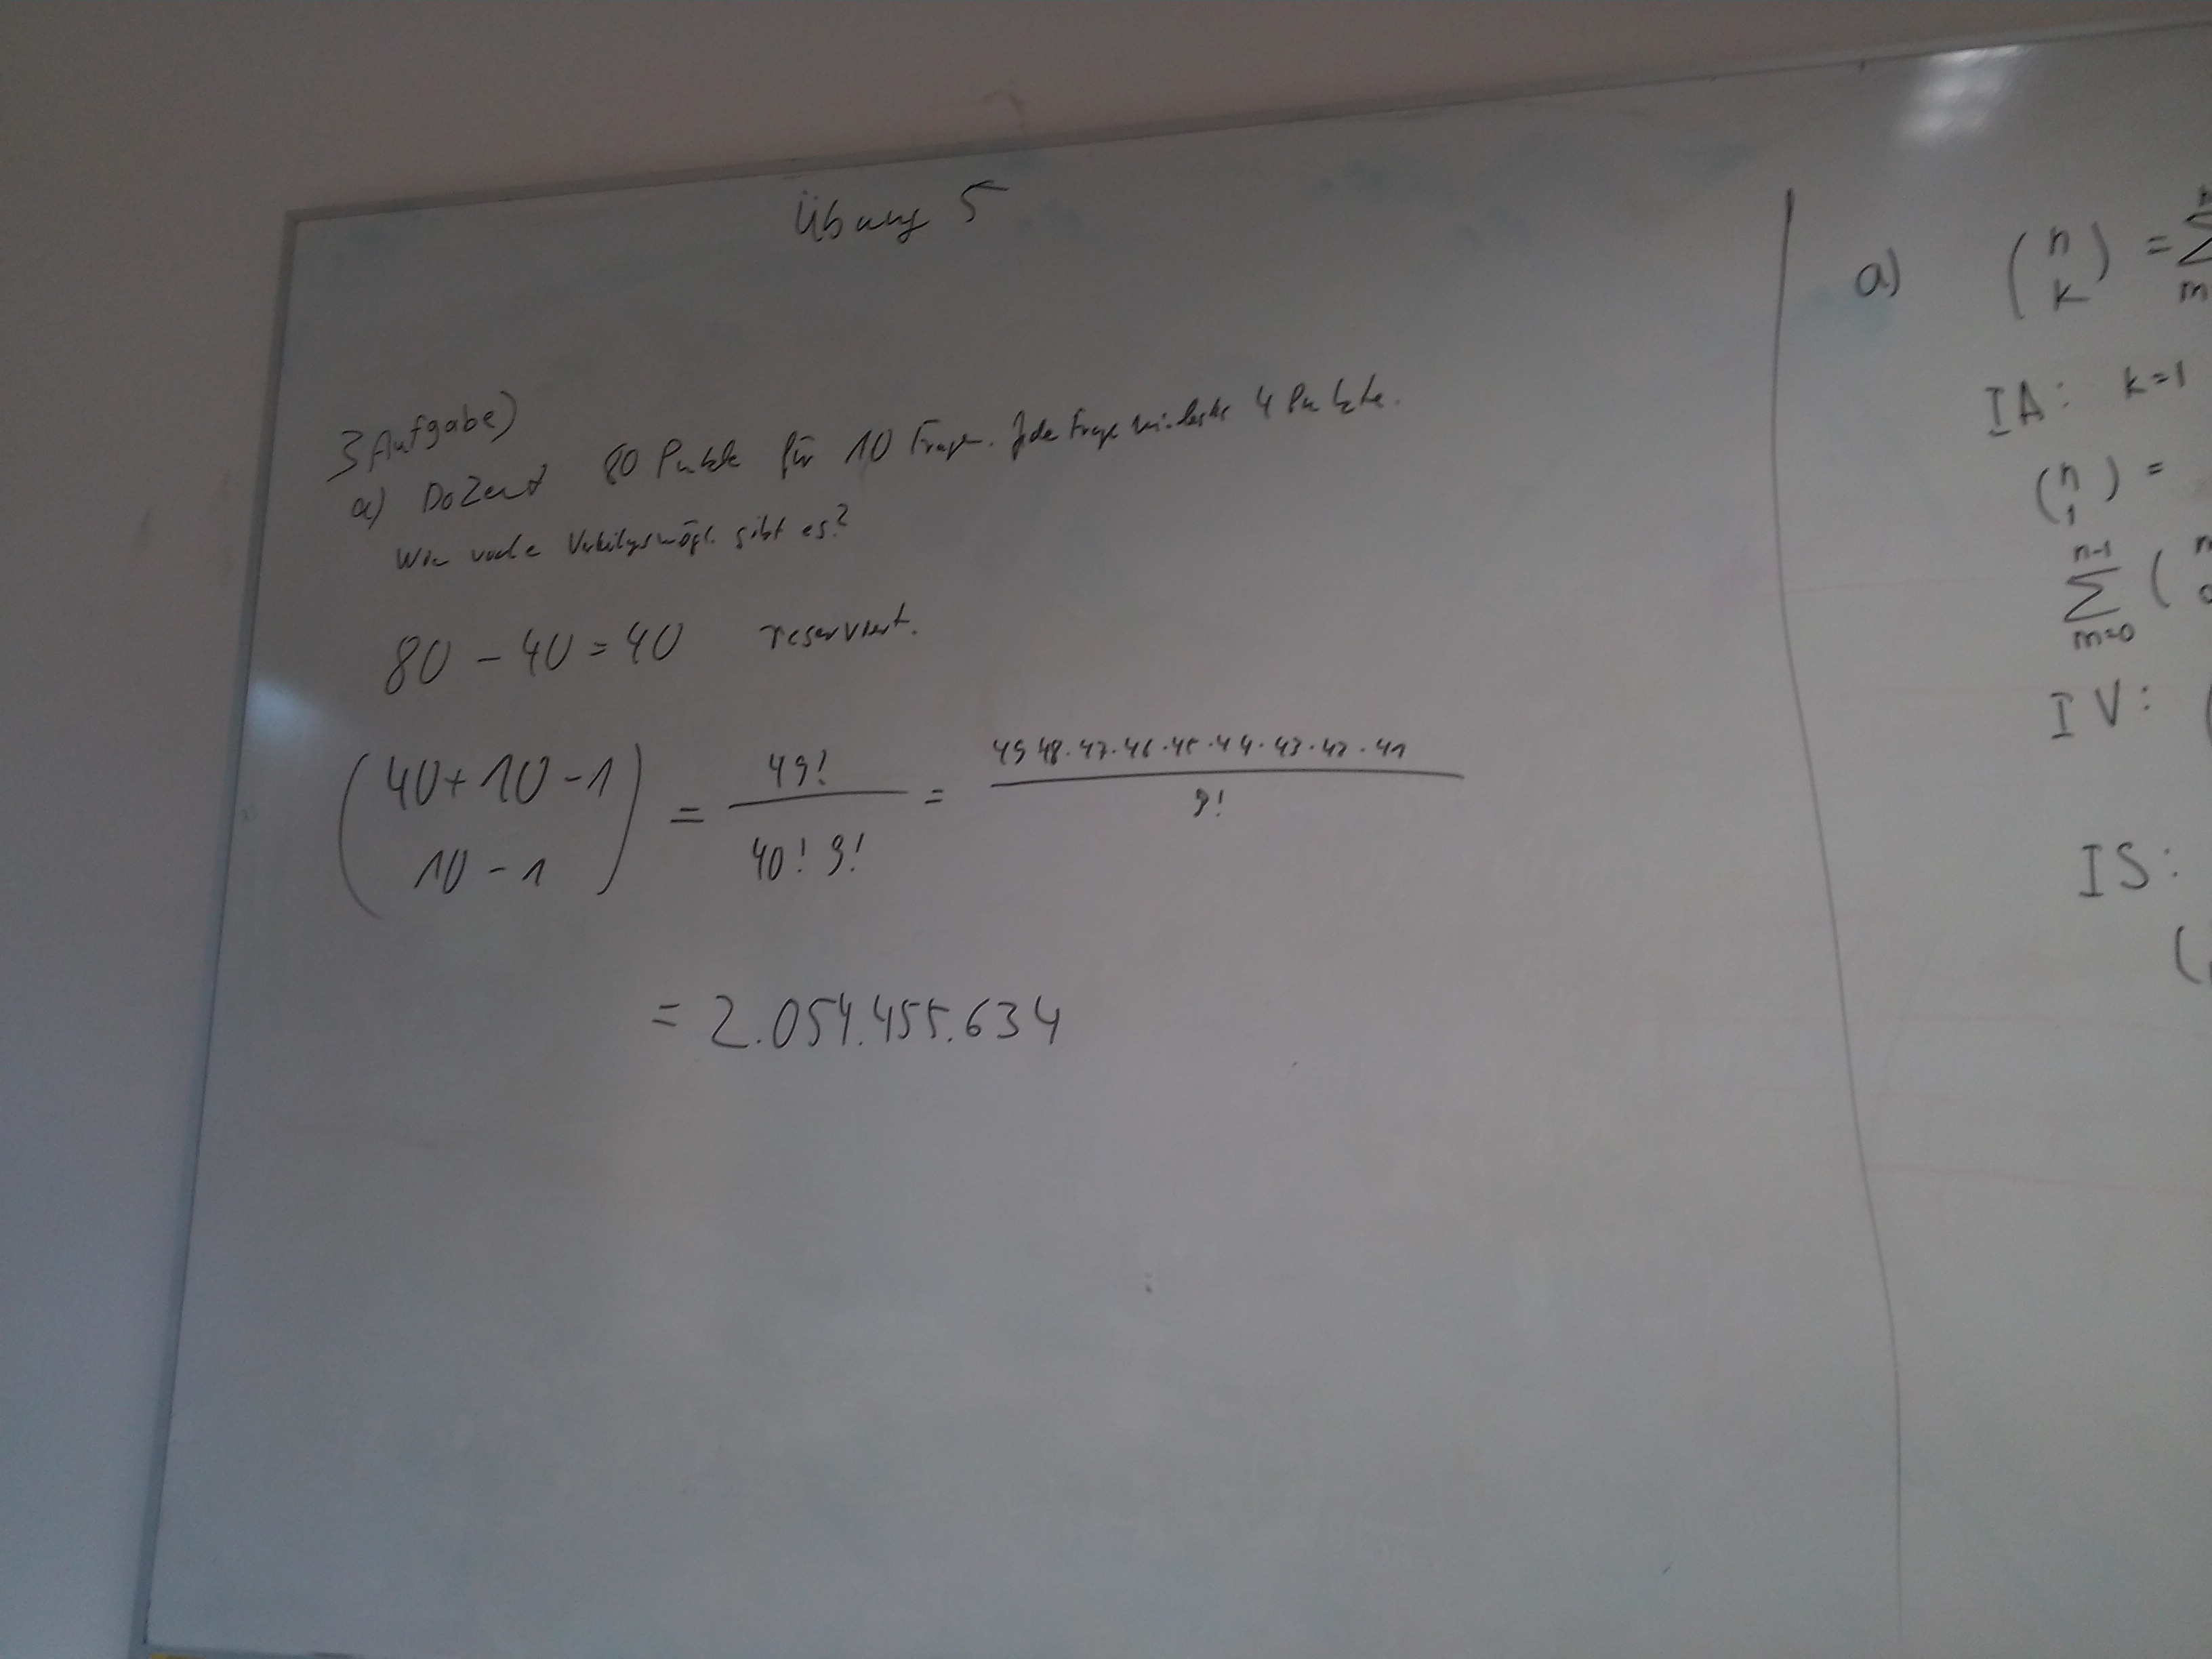 Übung 5
3 Aufgabe)
a) Dozent 80 Punkte für 10 Fragen. Jede Frage mindestens 4 Punkte.
Wie viele Verteilungsmögl. gibt es?
80 - 40 = 40 reserviert.
(40+10-1 über 10-1) = 49! / 40! 9! = 49 48·47·46·45·44·43·42·41 / 9!
= 2.054.455.634
a) (n über k) = ∑ m
IA: k=1
(n über 1) =
n-1 ∑ m=0 (
IV: (
IS:
(